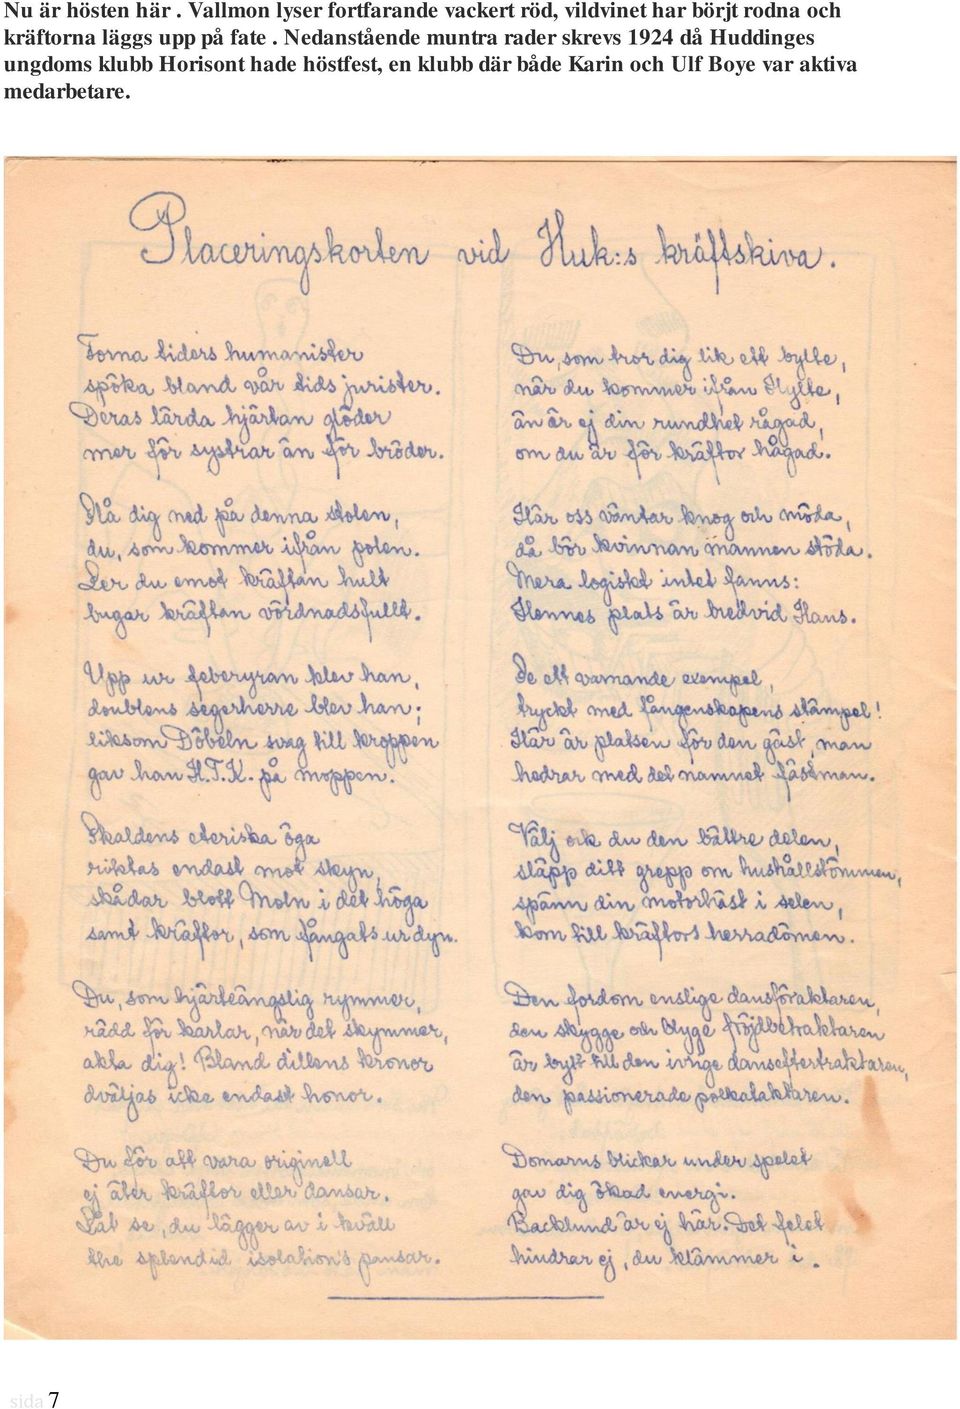 Nu är hösten här . Vallmon lyser fortfarande vackert röd, vildvinet har börjt rodna och
kräftorna läggs upp på fate . Nedanstående muntra rader skrevs 1924 då Huddinges
ungdoms klubb Horisont hade höstfest, en klubb där både Karin och Ulf Boye var aktiva
medarbetare.
Placeringskorten vid Huk:s kräftskiva.
Forna tiders humanister
spöka bland vår tids jurister.
Deras lärda hjärtan glöder
mer för systrar än för bröder.
Slå dig ned på denna stolen,
du, som kommer ifrån polen.
Ler du emot kräftan hult
bugar kräftan vördnadsfullt.
Upp ur feberyran klev han,
doublens segerherre blev han;
liksom Döbeln svag till kroppen
gav han H.T.K. på moppen.
Skaldens eteriska öga
riktas endast mot skyn,
skådar blott Moln i det höga
samt kräftor, som fångats ur dyn.
Du, som hjärteängslig rymmer,
rädd för karlar, när det skymmer,
akta dig! Bland dillens kronor
dväljas icke endast honor.
Du för att vara originell
ej äter kräftor eller dansar.
Låt se, du lägger av i kväll
the splendid isolation's pansar.
Du, som tror dig lik ett bylte,
när du kommer ifrån Hylte,
än är ej din rundhet rågad,
om du är för kräftor hågad.
Här oss väntar knog och möda,
då bör kvinnan mannen stöda.
Mera logiskt intet fanns:
Hennes plats är bredvid Hans.
Se ett varnande exempel,
tryckt med fångenskapens stämpel!
Här är platsen för den gäst, man
hedrar med det namnet fästman.
Välj ock du den bättre delen,
släpp ditt grepp om hushållstömmen,
spänn din motorhäst i selen,
kom till kräftors herradömen.
Den fordom enslige dansföraktaren,
den skygge och blyge fröjdbetraktaren
är bytt till den ivrige danseftertraktaren,
den passionerade polkataktaren.
Domarns blickar under spelet
gav dig ökad energi.
Backlund är ej här. Det felet
hindrar ej, du klämmer i.
sida 7